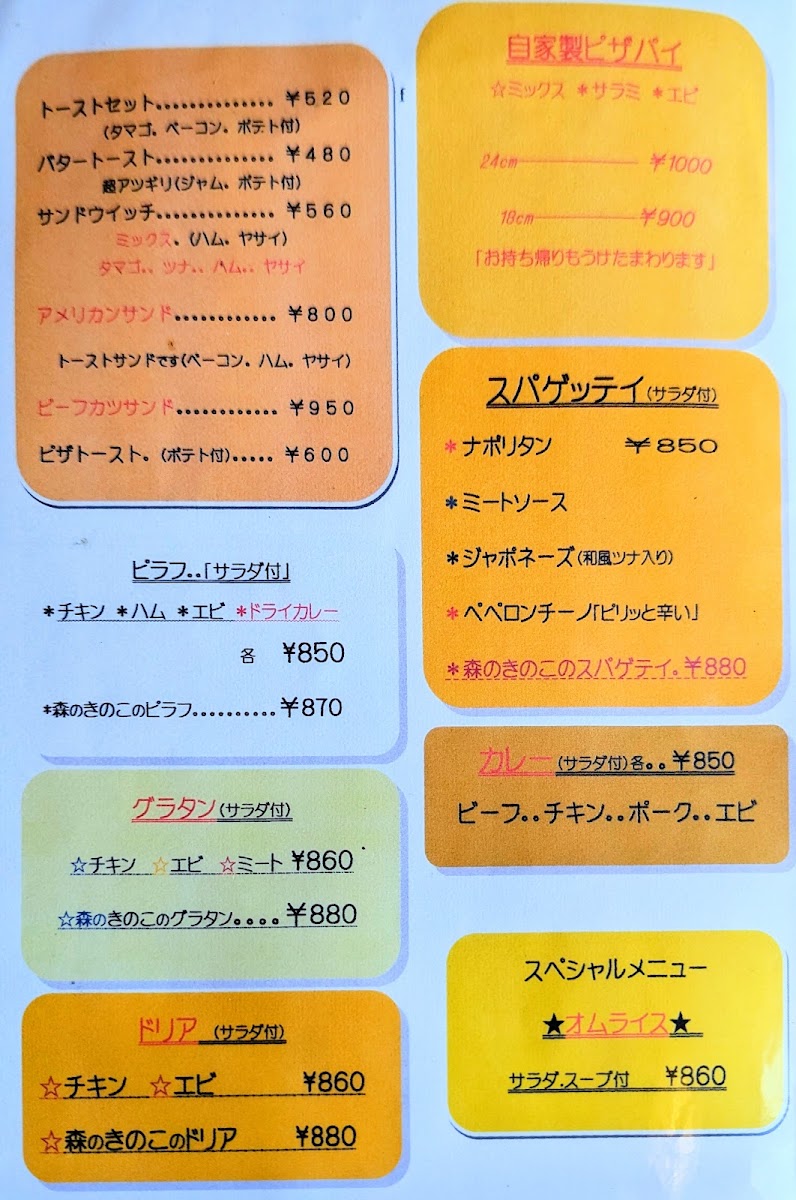 トーストセット.............. ￥520
(タマゴ。ベーコン。ポテト付)
バタートースト.............. ￥480
超アツギリ(ジャム。ポテト付)
サンドウイッチ.............. ￥560
ミックス。(ハム。ヤサイ)
タマゴ.. ツナ.. ハム.. ヤサイ
アメリカンサンド............ ￥800
トーストサンドです(ベーコン。ハム。ヤサイ)
ビーフカツサンド............ ￥950
ピザトースト。(ポテト付)..... ￥600
ピラフ..「サラダ付」
*チキン *ハム *エビ *ドライカレー
各 ￥850
*森のきのこのピラフ..........￥870
グラタン(サラダ付)
☆チキン ☆エビ ☆ミート ￥860
☆森のきのこのグラタン。。。。￥880
ドリア (サラダ付)
☆チキン ☆エビ ￥860
☆森のきのこのドリア ￥880
自家製ピザパイ
☆ミックス *サラミ *エビ
24cm―――――― ￥1000
18cm――――――￥900
「お持ち帰りもうけたまわります」
スパゲッテイ(サラダ付)
*ナポリタン ￥850
*ミートソース
*ジャポネーズ(和風ツナ入り)
*ペペロンチーノ「ピリッと辛い」
*森のきのこのスパゲテイ。￥880
カレー(サラダ付)各。。￥850
ビーフ。。チキン。。ポーク。。エビ
スペシャルメニュー
★オムライス★
サラダ.スープ付 ￥860